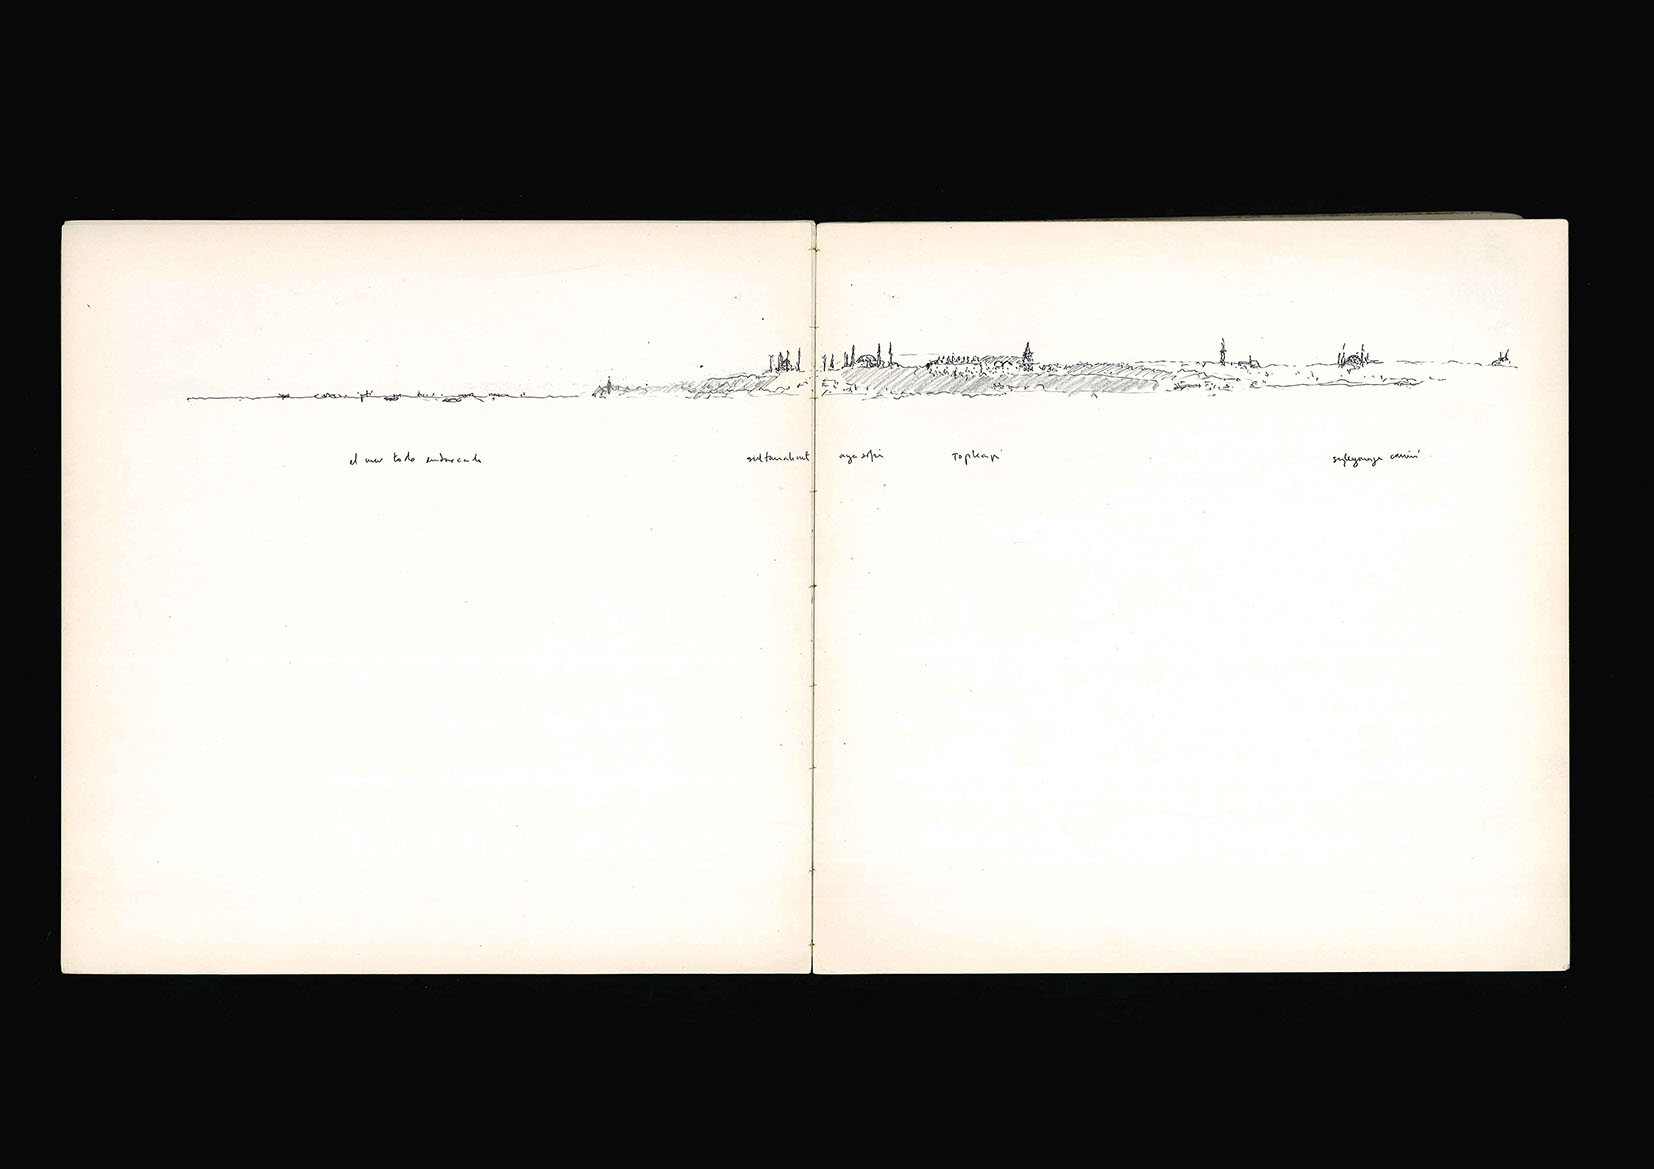 el mar todo embarcado
sultanahmet aya sofia Topkapi suleymaniye camii